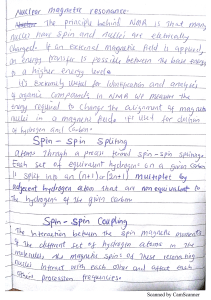 Nuclear magnetic resonance
Nuclear The principle behind NMR is that many
nuclei have spin and nuclei are electrically
charged. If an external magnetic field is applied,
an energy transfer is possible between the base energy
to a higher energy level
extremely used for identification and analysis
of organic compounds. In NMR we measure the
energy required to change the alignment of magnetic
nuclei in a magnetic field used for
of hydrogen and carbon.
Spin - Spin Spliting
through a process termed spin-spin
Each set of equivalent hydrogen on a given carbon
is split into an (n+1) or (2n+1) multiples by
adjacent hydrogen atom that are nonequivalent to
the hydrogen of the given carbon
Spin - Spin Coupling
The interaction between the spin magnetic moments
of the different set of hydrogen atoms in the
molecules. the magnetic spin of these
nuclei interact with each other and affect each
precession frequencies.
Scanned by CamScanner